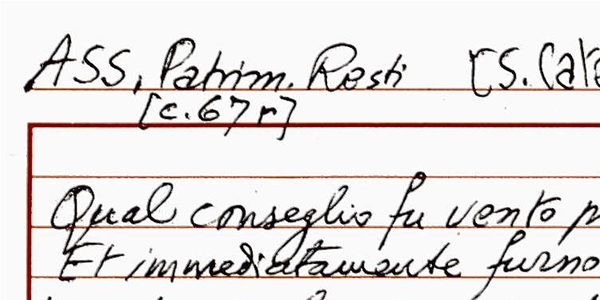 ASS, Patrim. Resti [S. Cate
[c. 67 r]
Qual conseglio fu vento p
Et immediatamente furno